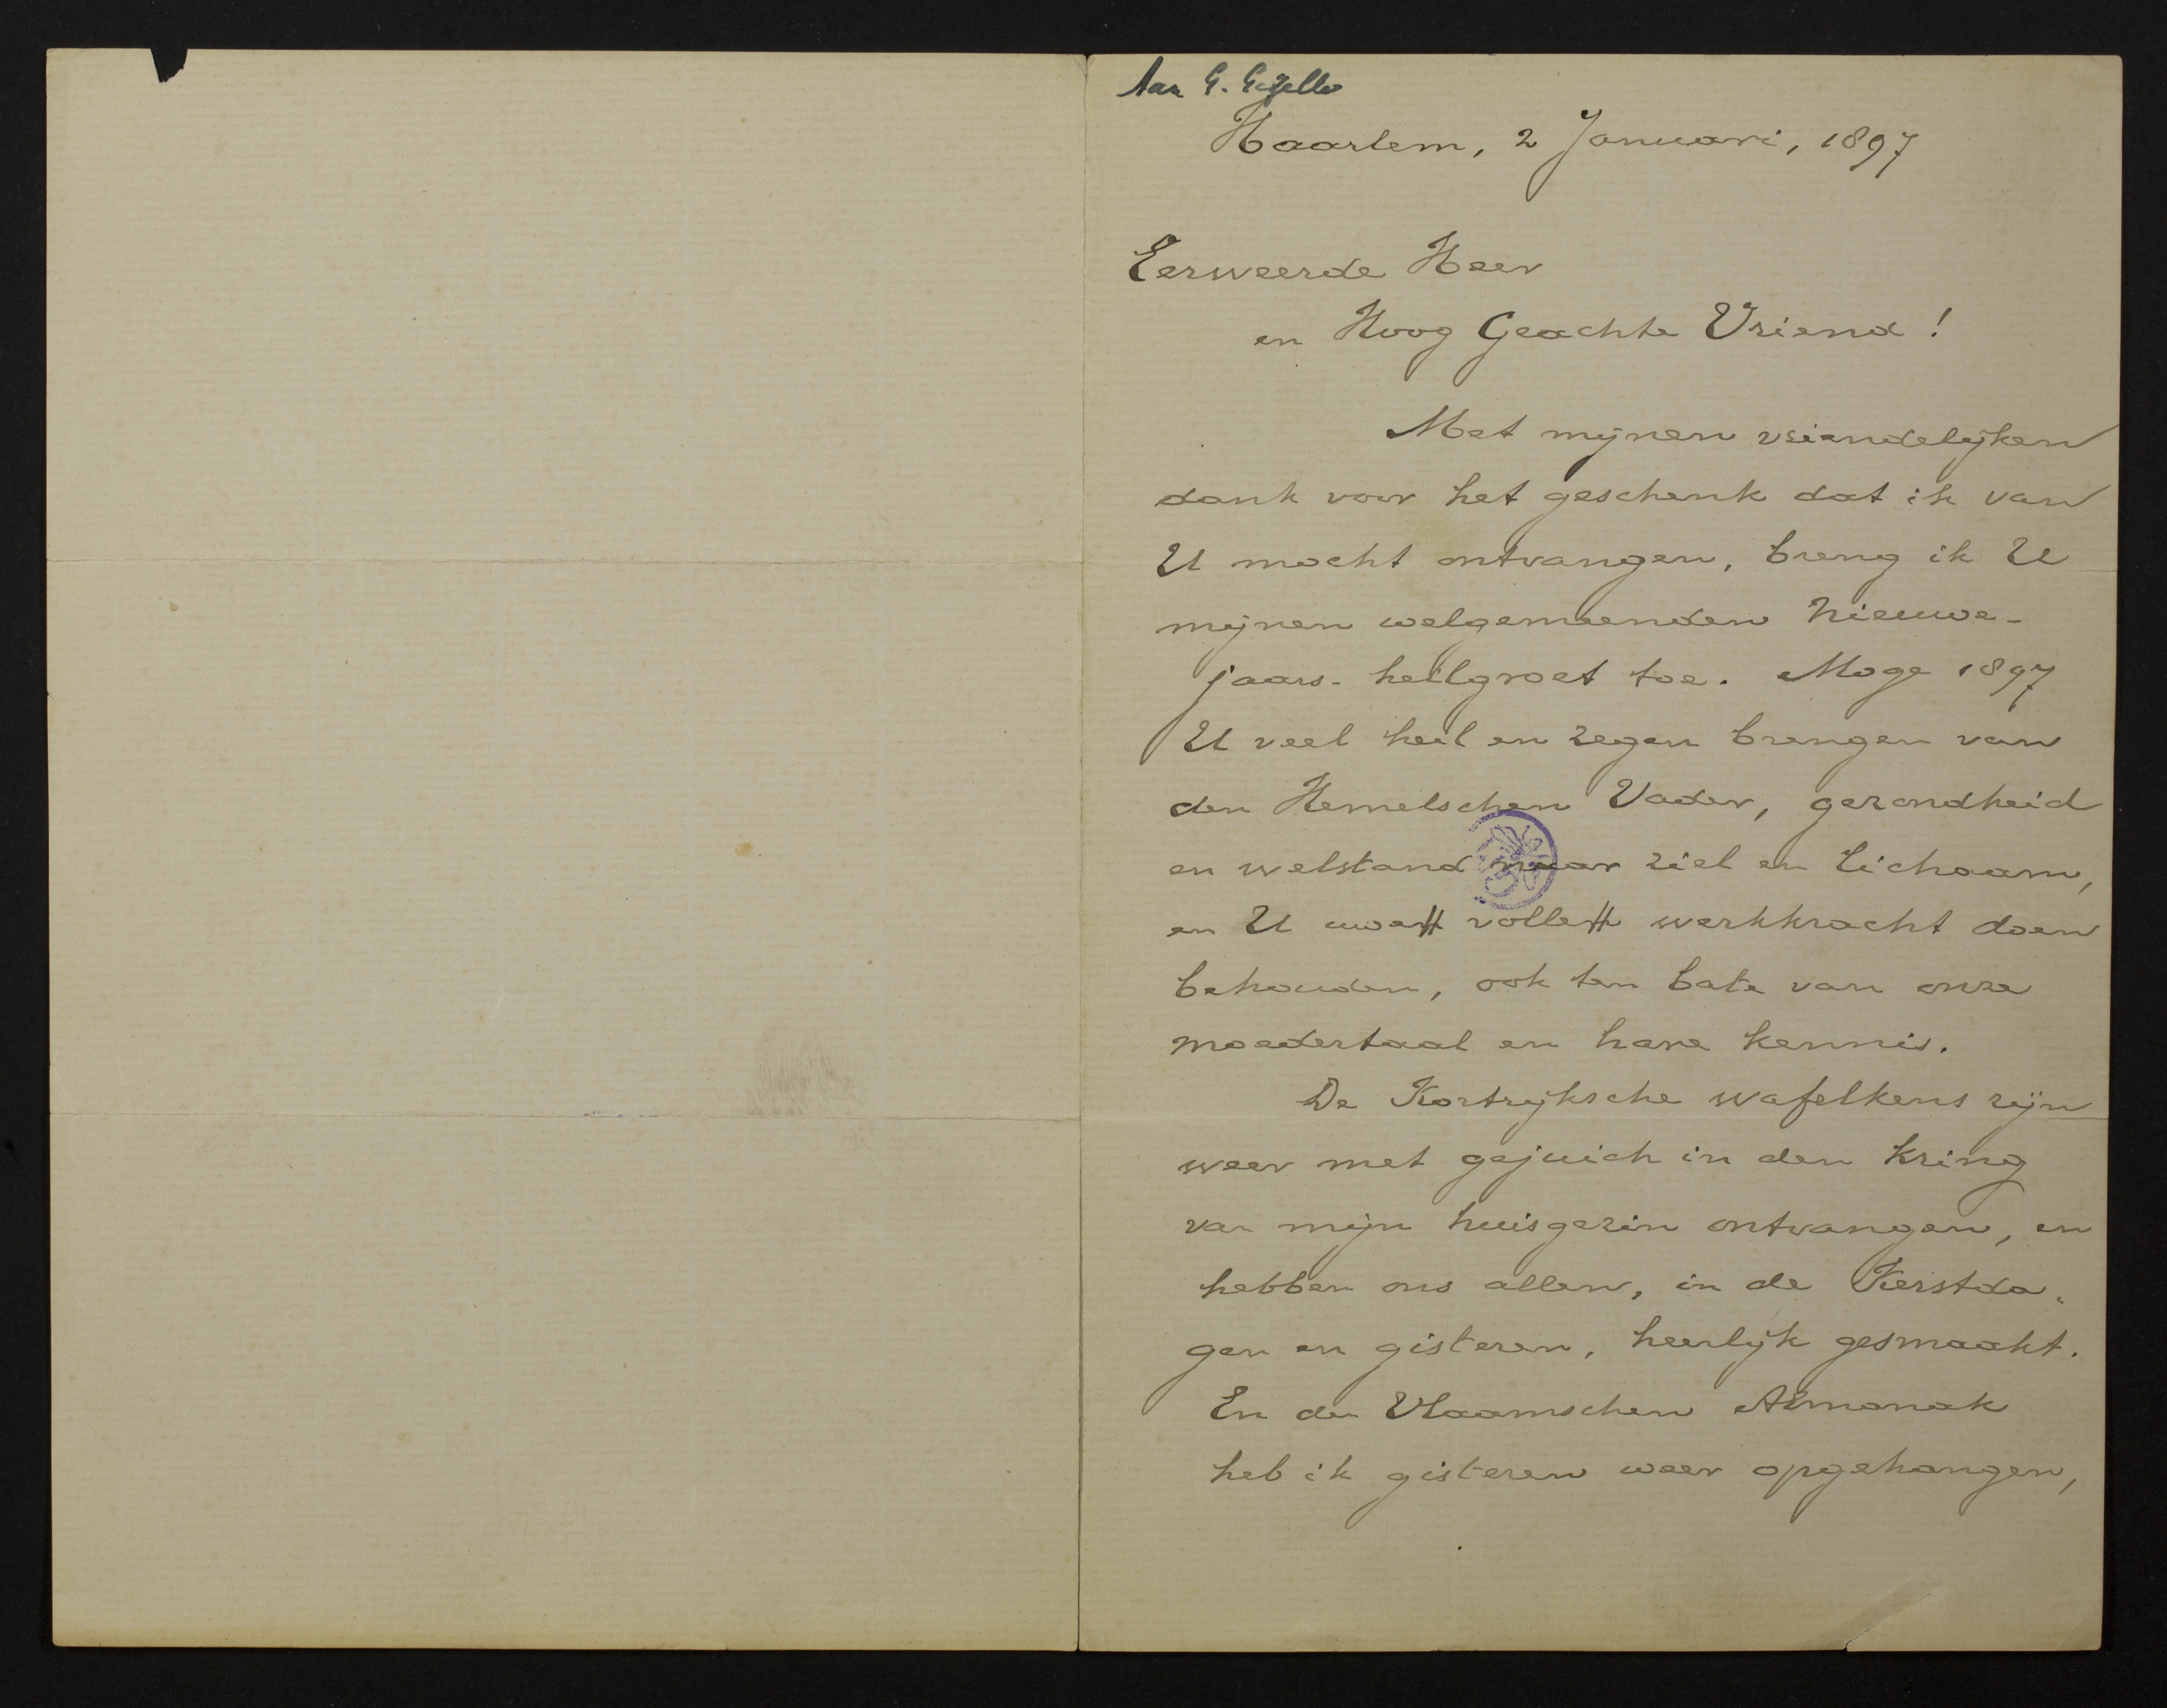 Aan G. Gezelle
Haarlem, 2 Januari, 1897
Eerweerde Heer
en Hoog Geachte Vriend!
Met mijnen vriendelijken
dank voor het geschenk dat ik van
U mocht ontvangen, breng ik U
mijnen welgemeenden Nieuwe-
jaars-heilgroet toe. Moge 1897
U veel heil en zegen brengen van
den Hemelschen Vader, gezondheid
en welstand naar ziel en lichaam,
en U uwe volle werkkracht doen
behouden, ook ten bate van onze
moedertaal en hare kennis.
De Kortrijksche wafelkens zijn
weer met gejuich in den kring
van mijn huisgezin ontvangen, en
hebben ons allen, in de Kerstda-
gen en gisteren, heerlijk gesmaakt.
En den Vlaamschen Almanak
heb ik gisteren weer opgehangen,